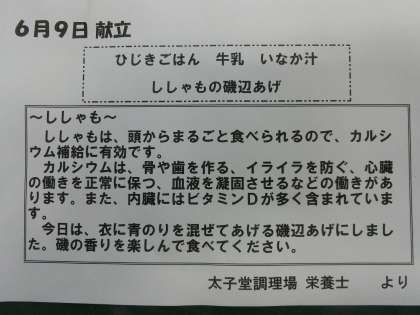 6月9日 献立
ひじきごはん 牛乳 いなか汁
ししゃもの磯辺あげ
～ししゃも～
ししゃもは、頭からまるごと食べられるので、カルシ
ウム補給に有効です。
カルシウムは、骨や歯を作る、イライラを防ぐ、心臓
の働きを正常に保つ、血液を凝固させるなどの働きがあ
ります。また、内臓にはビタミンDが多く含まれていま
す。
今日は、衣に青のりを混ぜてあげる磯辺あげにしまし
た。磯の香りを楽しんで食べてください。
太子堂調理場 栄養士 より